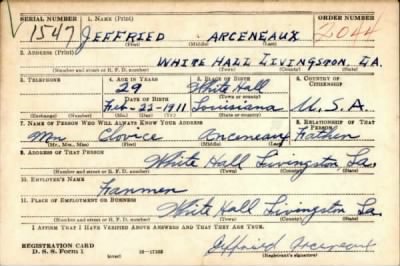 SERIAL NUMBER 1. NAME (Print) ORDER NUMBER
1547 JEFFRIED ARCENEAUX 2044
(First) (Middle) (Last)
2. ADDRESS (Print)
WHITE HALL LIVINGSTON, LA.
(Number and street or R. F. D. number) (Town) (County) (State)
3. TELEPHONE 4. AGE IN YEARS 5. PLACE OF BIRTH 6. COUNTRY OF CITIZENSHIP
29 White Hall
(Town or county)
DATE OF BIRTH
Feb-22-1911 Louisiana U.S.A.
(Exchange) (Number) (Mo.) (Day) (Yr.) (State or country)
7. NAME OF PERSON WHO WILL ALWAYS KNOW YOUR ADDRESS 8. RELATIONSHIP OF THAT PERSON
Mr Clovice Arceneaux Father
(Mr., Mrs., Miss) (First) (Middle) (Last)
9. ADDRESS OF THAT PERSON
White Hall Livingston La.
(Number and street or R. F. D. number) (Town) (County) (State)
10. EMPLOYER'S NAME
Farmer
11. PLACE OF EMPLOYMENT OR BUSINESS
White Hall Livingston La.
(Number and street or R. F. D. number) (Town) (County) (State)
I AFFIRM THAT I HAVE VERIFIED ABOVE ANSWERS AND THAT THEY ARE TRUE.
REGISTRATION CARD
D. S. S. Form 1 (over) Jeffried Arceneaux
(Registrant's signature)